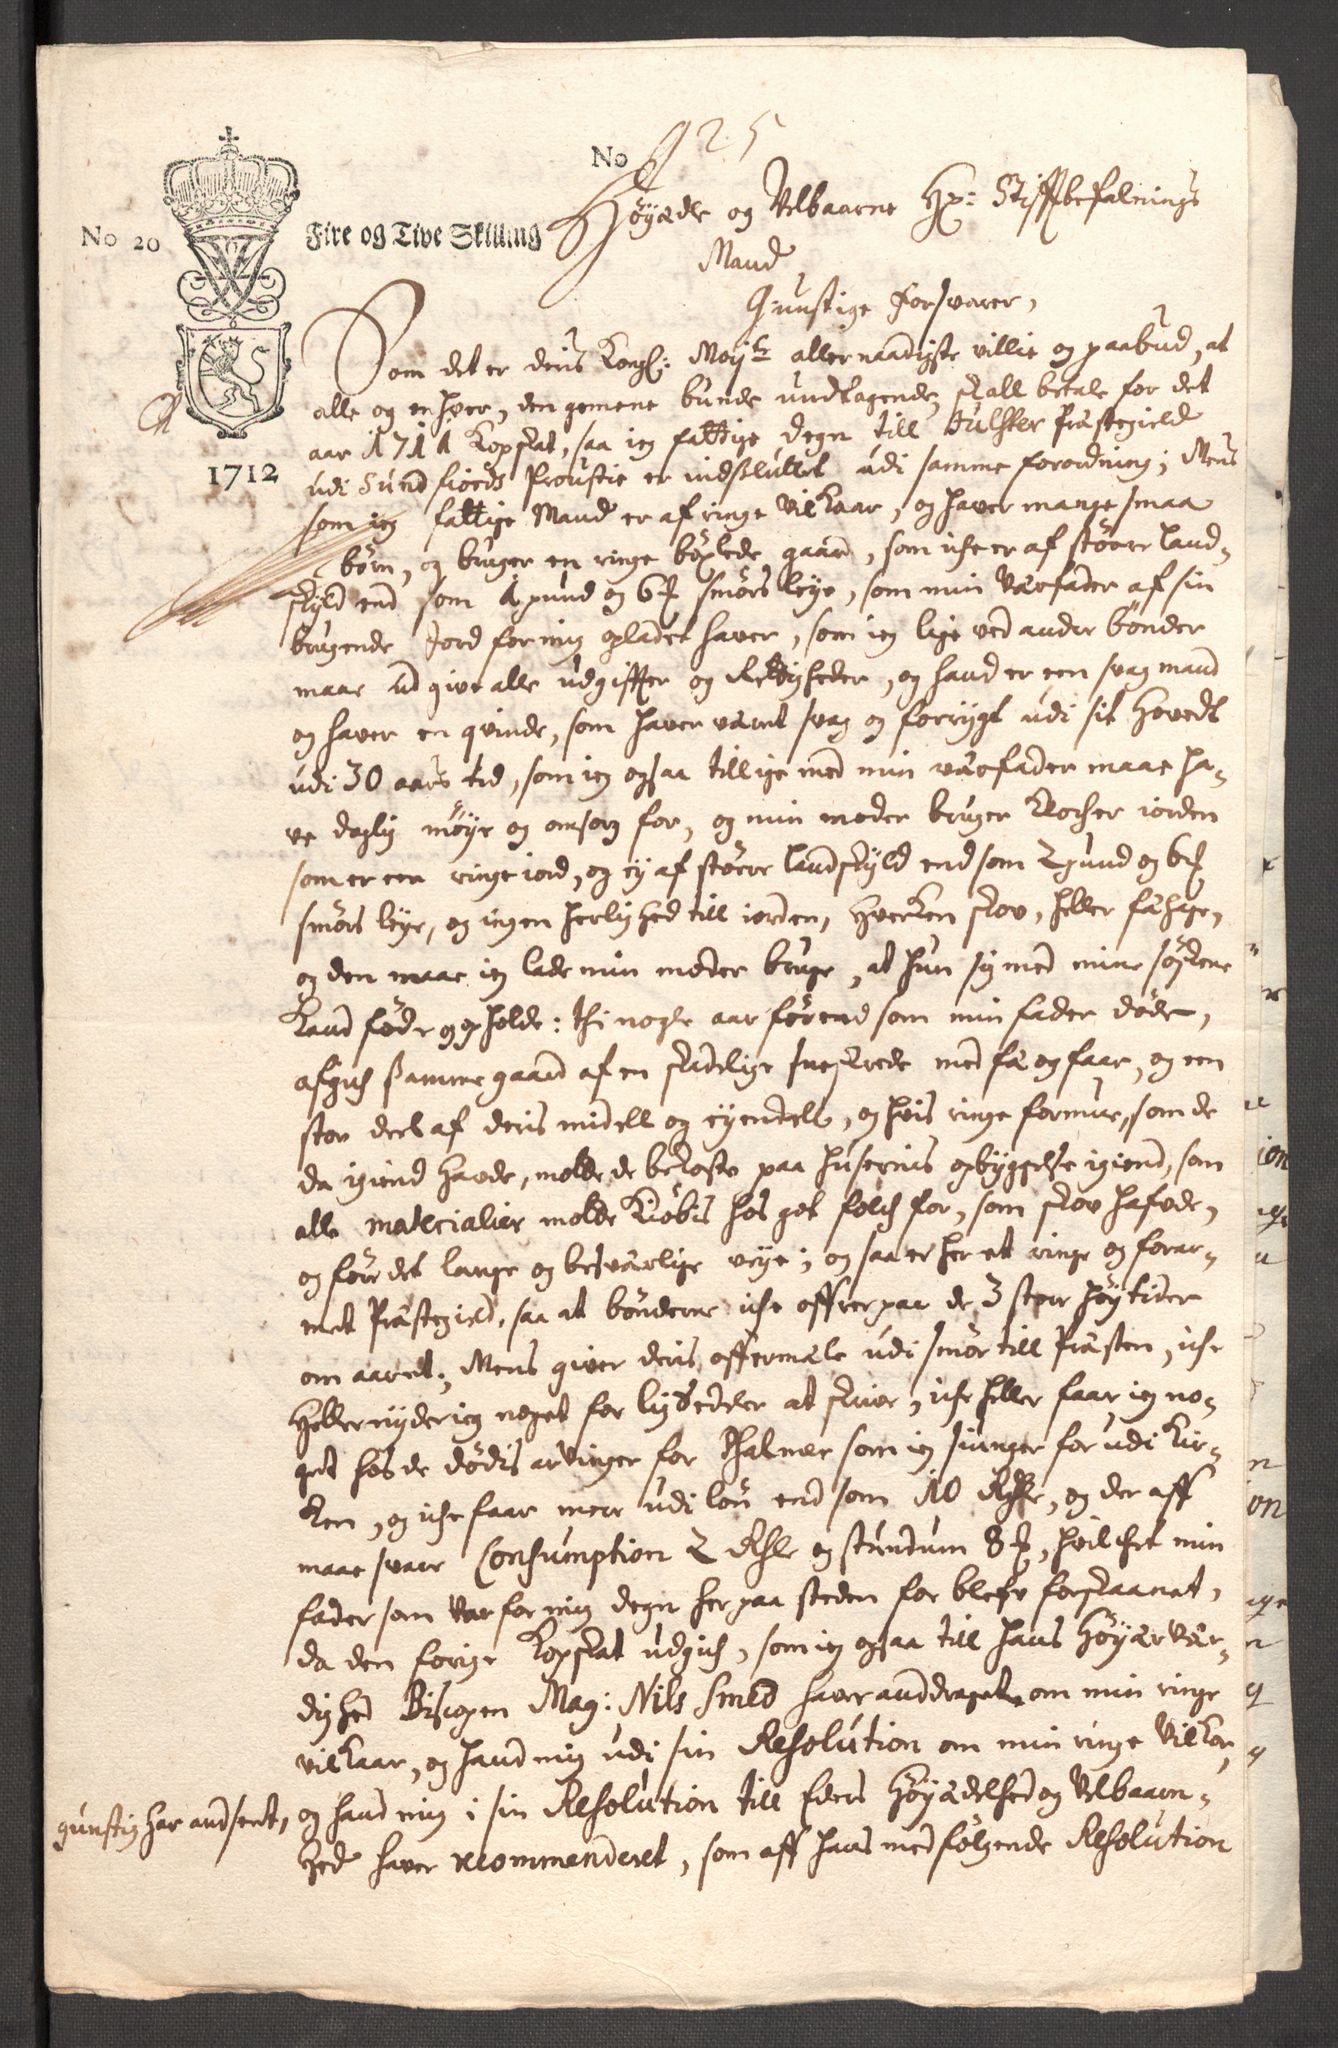 No 25
No 20
Fire og Tive Skilling
1712
Høyædle og Velbaarne Hr: Stiftbefalnings
Mand
Gunstige Forsvarer,
Som det er deris Kongl: Mayts allernaadigste villie og paabud, at
alle og en hver, den gemene bunde undtagende, skall betale for det
aar 1711 Kopskat, saa ieg fattige Degn till Iulster Præstegield
udi Sundfiords Proustie er indsluttet udi samme forordning; Mens
som ieg fattige Mand er af ringe vilkaar, og haver mange smaa
børn, og bruger en ringe böxlede gaard, som iche er af större land-
skyld end som 1 pund og 6 smörs leye, som min værfader af sin
brugende Jord for mig opladet haver, som ieg lige ved andre bönder
maae udgive alle udgiffter og Rettigheder, og hand er een svag mand
og haver en qvinde, som haver været svag og forrygt udi sit Hovedt
udi 30 aars tid, som ieg ogsaa tillige med min værfader maae ha-
ve daglig möye og omsorg for, og min moder bruger Klocher iorden
som er een ringe iord, og ey af större landskyld end som 2 pund og 6
smörs leye, og ingen herlighed till iorden, hverken skov, heller fæhage,
og den maae ieg lade min moder bruge, at hun sig med mine söskene
kand föde og opholde: thi nogle aar förend som min fader döde,
afgich samme gaard af en skadelige med fæ og faar, og een
stor deel af deris midell og eyendell, og hvis ringe formue, som de
da igiend havde, molde de bekoste paa husernis opbyggelse igiend, som
alle materialier molde kiöbis hos got folch for, som skov hafvde,
og före det lange og besværlige veye; og saa er her et ringe og forar-
met Præstegield, saa at bönderne iche offrer paa de 3 store höytider
om aaret; Mens giver deris offermæle udi smör till Præsten, iche
heller nyder ieg noget for lysedder at skrive, iche heller faar ieg no-
get hos de dödis arvinger for Psalmer som ieg siunger for udi Kir-
ken, og iche faar mere udi lön end som 10 Rdlr, og der aff
maae svare Consumption 2 Rdlr og stundum 8, hvilchet min
fader som var for mig degn her paa steden for blefv forskaanet,
da den forige Kopskat udgich, som ieg ogsaa till hans Höyærvær-
dighed Biscopen Mag: Nils Smed haver anddraget om min ringe
vilkaar, og hand mig udi sin Resolution om min ringe vilkor
gunstig har andsent, og hand mig i sin Resolution till Eders Höyædelhed og Velbaarn-
hed haver recommenderet, som aff hans medfölgende Resolution